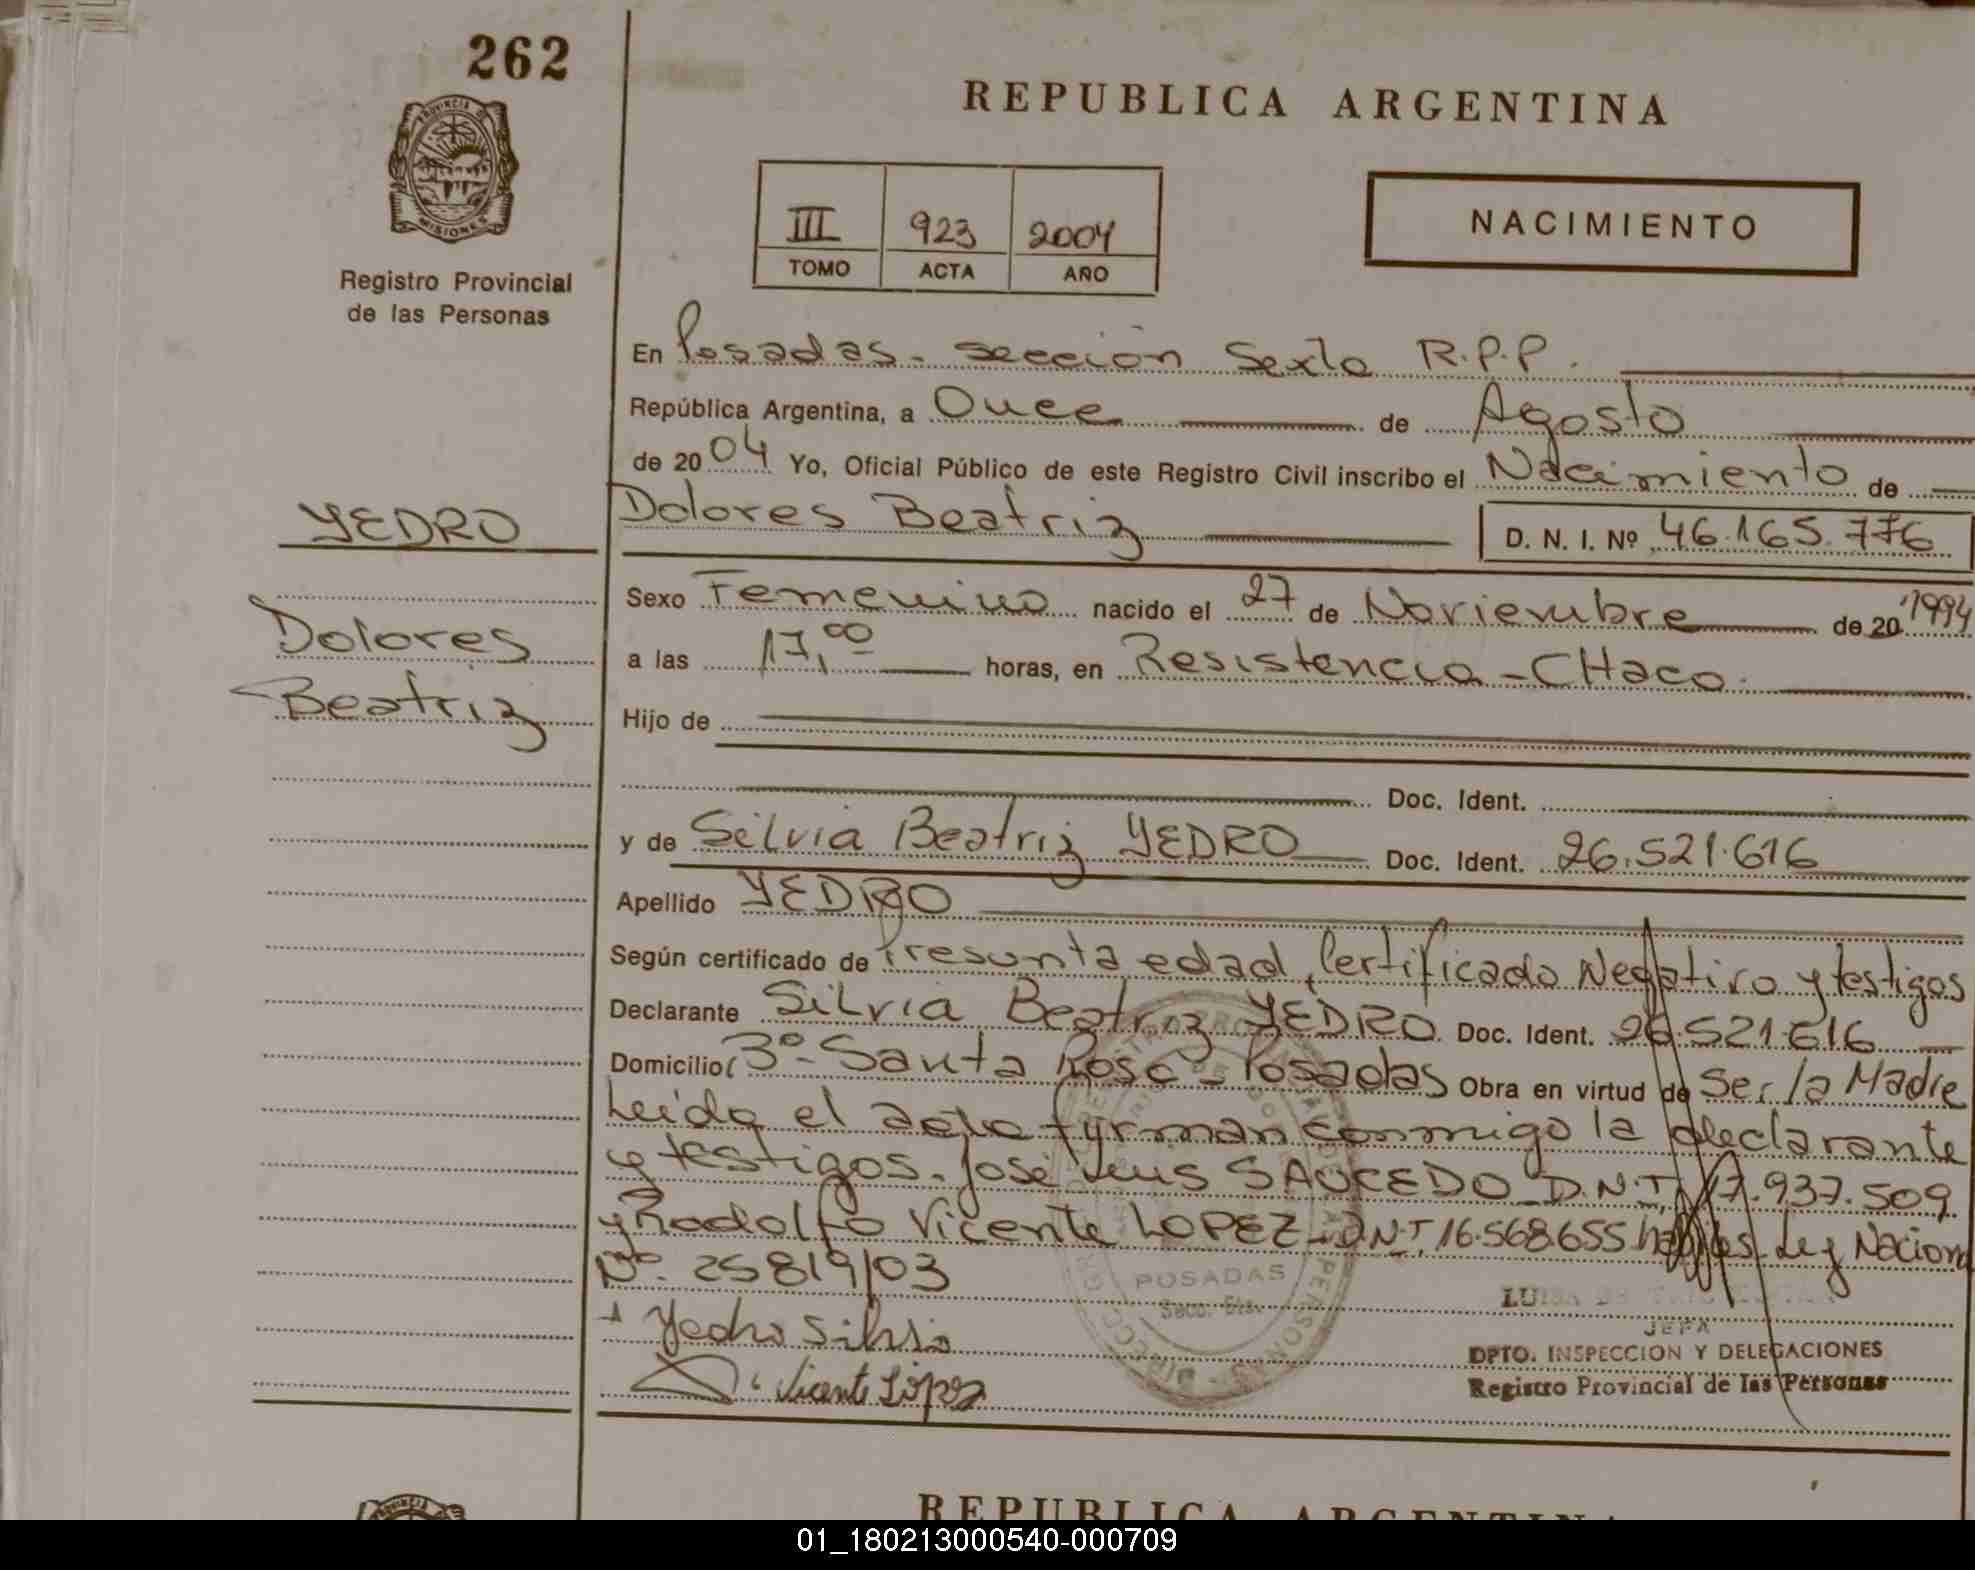 262
REPUBLICA ARGENTINA
PROVINCIA DE
MISIONES
Registro Provincial
de las Personas
III 923 2004
TOMO ACTA AÑO
NACIMIENTO
En Posadas - sección Sexta R.P.P.
República Argentina, a Once de Agosto
de 20 04 Yo, Oficial Público de este Registro Civil inscribo el Nacimiento de
YEDRO
Dolores Beatriz D. N. I. Nº 46.165.776
Sexo Femenino nacido el 27 de Noviembre de 20 1994
Dolores
a las 17,00 horas, en Resistencia - CHaco.
Beatriz
Hijo de
Doc. Ident.
y de Silvia Beatriz YEDRO Doc. Ident. 26.521.616
Apellido YEDRO
Según certificado de Presunta edad, Certificado Negativo y testigos
Declarante Silvia Beatriz YEDRO Doc. Ident. 26.521.616
Domicilio 3º - Santa Rosa - Posadas Obra en virtud de Ser la Madre
Leida el acta firman conmigo la declarante
y testigos. José Luis SAUCEDO D.N.I. 17.937.509
y Rodolfo Vicente LOPEZ - D.N.I 16.568.655 habiles Ley Nacion
Nº 25819/03
POSADAS
Secc.
Yedro Silvia
Vicente López
JEFA
DPTO. INSPECCION Y DELEGACIONES
Registro Provincial de las Personas
REPUBLICA ARGENTINA
01_180213000540-000709